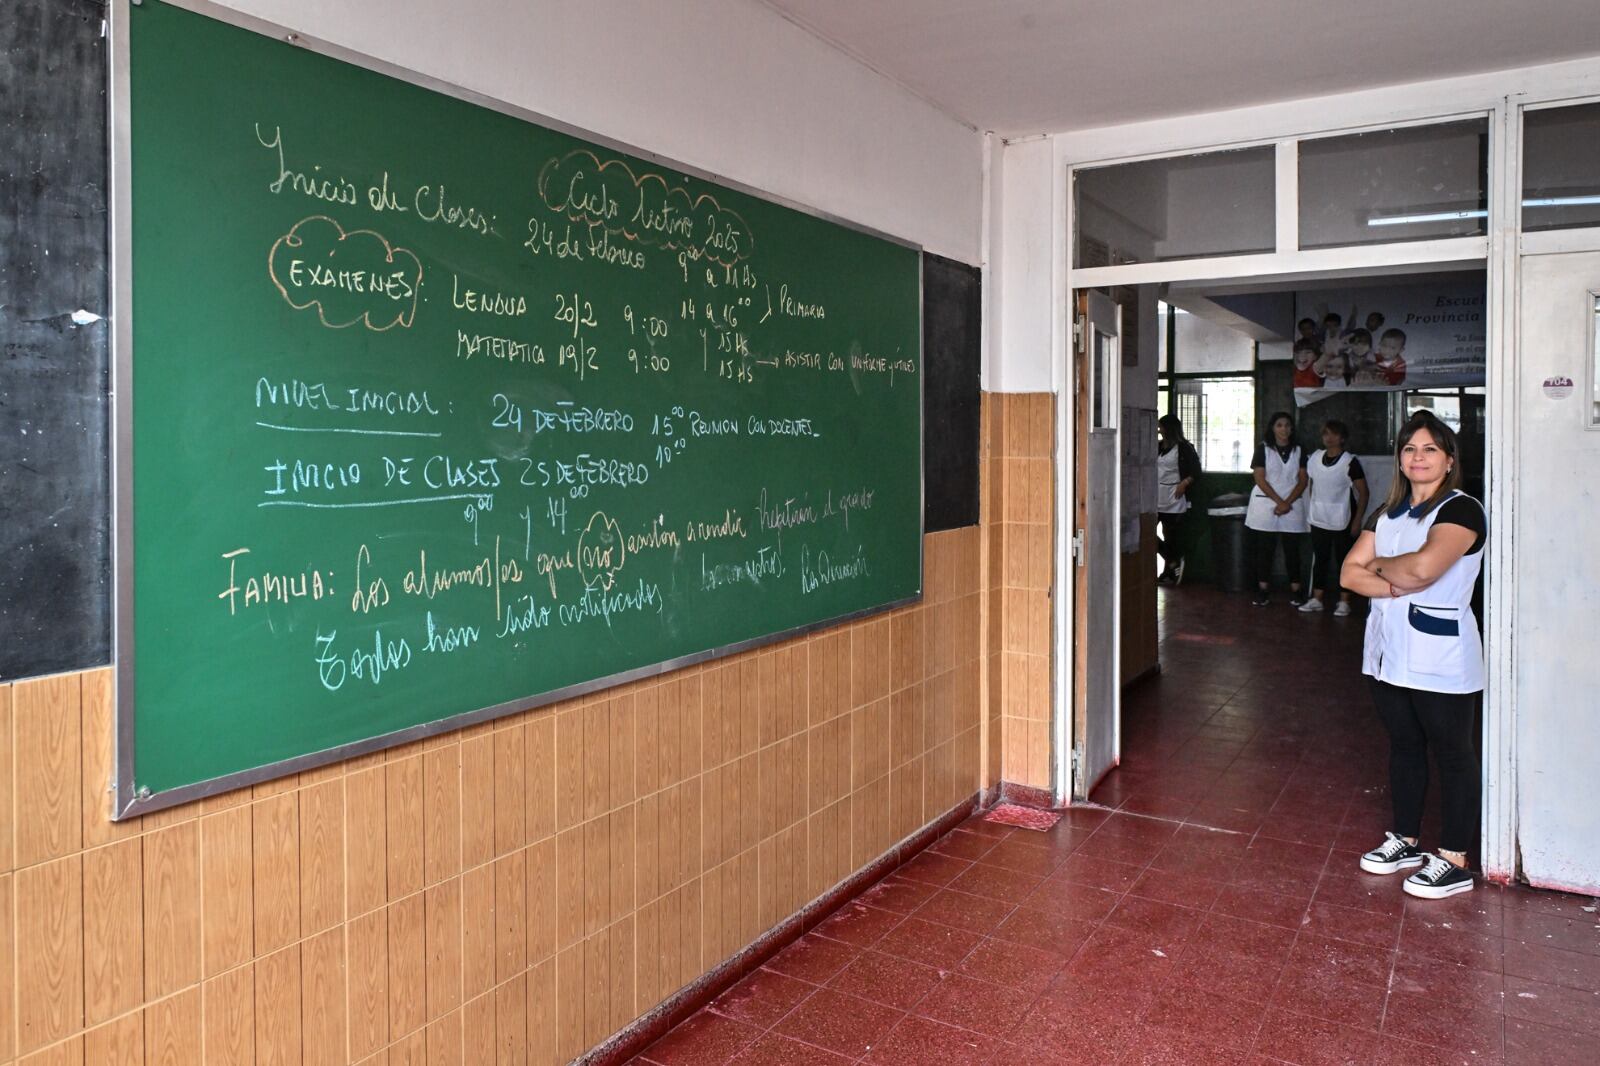 Ciclo lectivo 2025
Inicio de Clases: 24 de Febrero 9⁰⁰ a 11 Hs
14 a 16⁰⁰ } PRIMARIA
EXÁMENES: LENGUA 20/2 9:00 y 15 Hs
MATEMATICA 19/2 9:00 15 Hs → ASISTIR CON UNIFORME y ÚTILES
NIVEL INICIAL: 24 DE FEBRERO 15⁰⁰ REUNION CON DOCENTES_
10⁰⁰
INICIO DE CLASES 25 DE FEBRERO
9⁰⁰ y 14⁰⁰
FAMILIA: Los alumnos/as que (no) asistan a rendir Repetirán el grado
Todos han sido notificados
La Dirección
Escuel
Provincia
"La Escu
en el esp
104